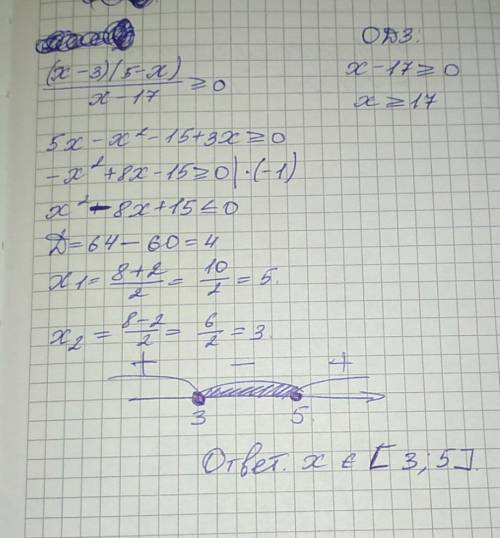 ОДЗ:
(x-3)(5-x)/x-17 ≥ 0
x-17 ≥ 0
x ≥ 17
5x - x² - 15 + 3x ≥ 0
-x² + 8x - 15 ≥ 0 | ·(-1)
x² - 8x + 15 ≤ 0
D = 64 - 60 = 4
x₁ = 8+2/2 = 10/2 = 5.
x₂ = 8-2/2 = 6/2 = 3.
+ - +
3 5.
Ответ. x ∈ [3; 5].